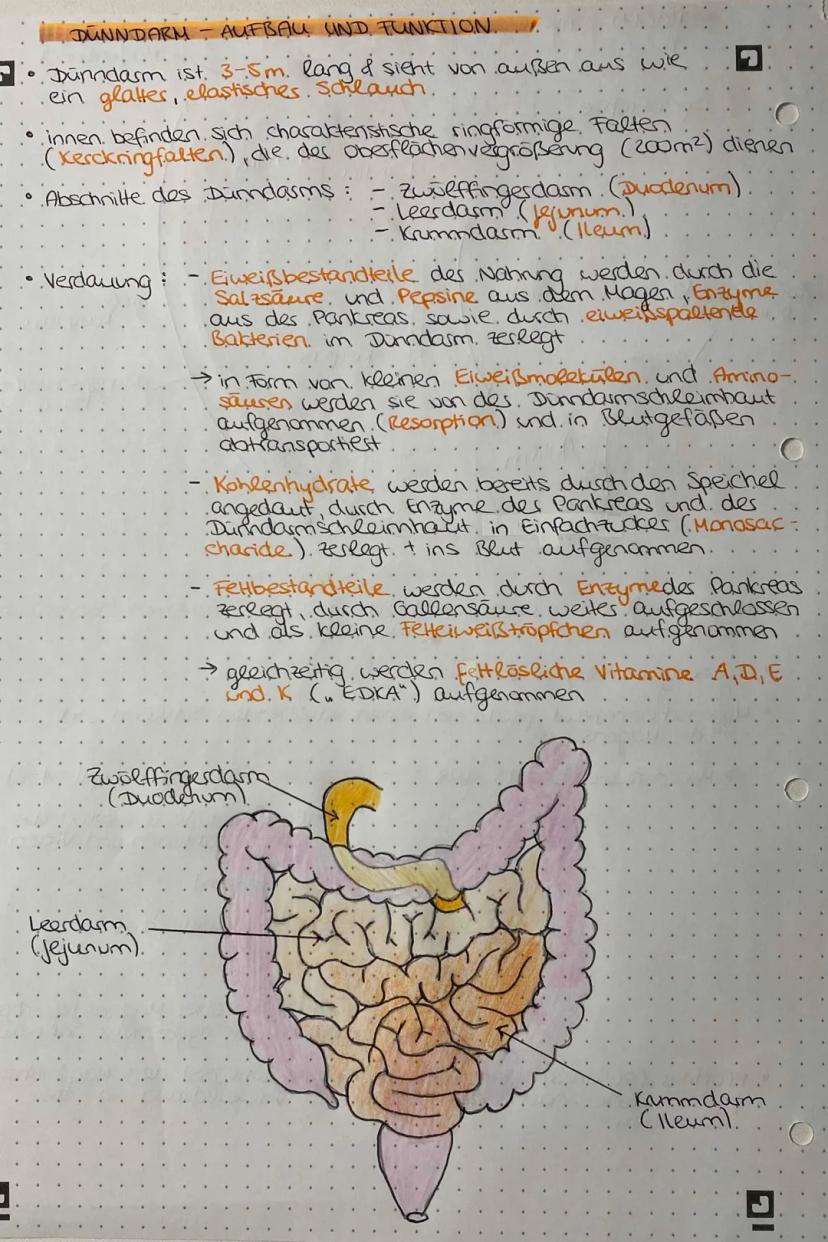 DÜNNDARM – AUFBAU UND FUNKTION
• Dünndarm ist 3-5m lang & sieht von außen aus wie
ein glatter, elastischer Schlauch
• innen befinden sich charakteristische ringförmige Falten
(Kerckringfalten), die der Oberflächenvergrößerung (200m²) dienen
• Abschnitte des Dünndarms : – Zwölffingerdarm (Duodenum)
– Leerdarm (Jejunum)
– Krummdarm (Ileum)
• Verdauung : – Eiweißbestandteile der Nahrung werden durch die
Salzsäure und Pepsine aus dem Magen, Enzyme
aus des Pankreas sowie durch eiweißspaltende
Bakterien im Dünndarm zerlegt
→ in Form von kleinen Eiweißmolekülen und Amino-
säuren werden sie von der Dünndarmschleimhaut
aufgenommen (Resorption) und in Blutgefäßen
abtransportiert
– Kohlenhydrate werden bereits durch den Speichel
angedaut, durch Enzyme des Pankreas und der
Dünndarmschleimhaut in Einfachzucker (Monosac-
charide) zerlegt + ins Blut aufgenommen
– Fettbestandteile werden durch Enzyme des Pankreas
zerlegt, durch Gallensäure weiter aufgeschlossen
und als kleine Fetteiweißtröpfchen aufgenommen
→ gleichzeitig werden fettlösliche Vitamine A, D, E
und K („EDKA“) aufgenommen
Zwölffingerdarm
(Duodenum)
Leerdarm
(Jejunum)
Krummdarm
(Ileum)